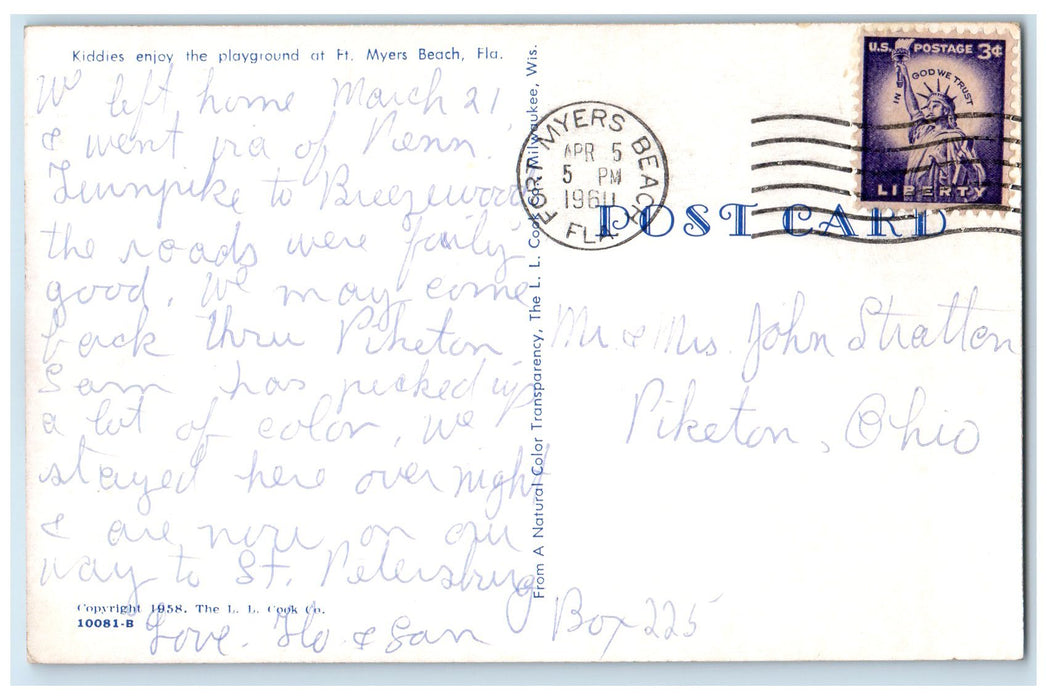 Kiddies enjoy the playground at Ft. Myers Beach, Fla.
We left home March 21,
& went via of Penn.
Turnpike to Breezewood
the roads were fairly
good. We may come
back thru Piketon.
Sam has picked up
a lot of color, we
stayed here over night
& are now on our
way to St. Petersburg
Copyright 1958. The L. L. Cook Co.
10081-B
Love. Flo & Sam
From A Natural Color Transparency, The L. L. Cook Co., Milwaukee, Wis.
FORT MYERS BEACH
APR 5
5 PM
1960
FLA.
U.S. POSTAGE 3¢
IN GOD WE TRUST
LIBERTY
POST CARD
Mr. & Mrs. John Stratton
Piketon, Ohio
Box 225